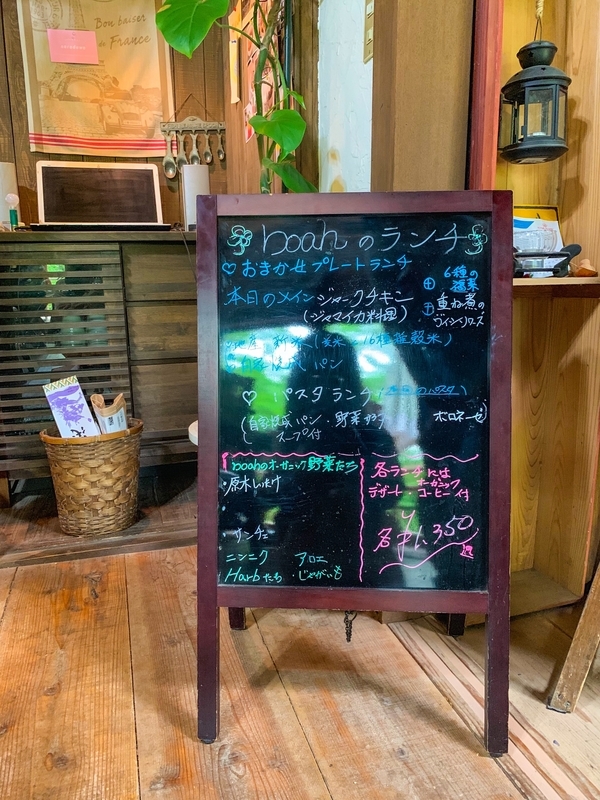 Bon baiser
de France
noahのランチ
♡おまかせプレートランチ
本日のメイン ジャークチキン
(ジャマイカ料理)
⊕ 6種の
温菜
⊕ 重ね煮の
新米(玄米
16種雑穀米)
パン
♡ パスタランチ(本日のパスタ)
(自家焼成パン・野菜
スープ付
ボロネーゼ)
noahのオーガニック野菜たち
・原木しいたけ
・サンチュ
ニンニク アロエ
Harbたち じゃがいも
各ランチには
オーガニック
デザート・コーヒー付
各 ¥1,350